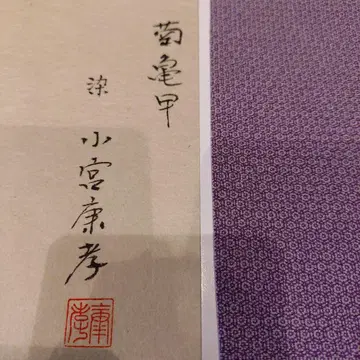 菊亀甲
染 小宮康孝
康孝